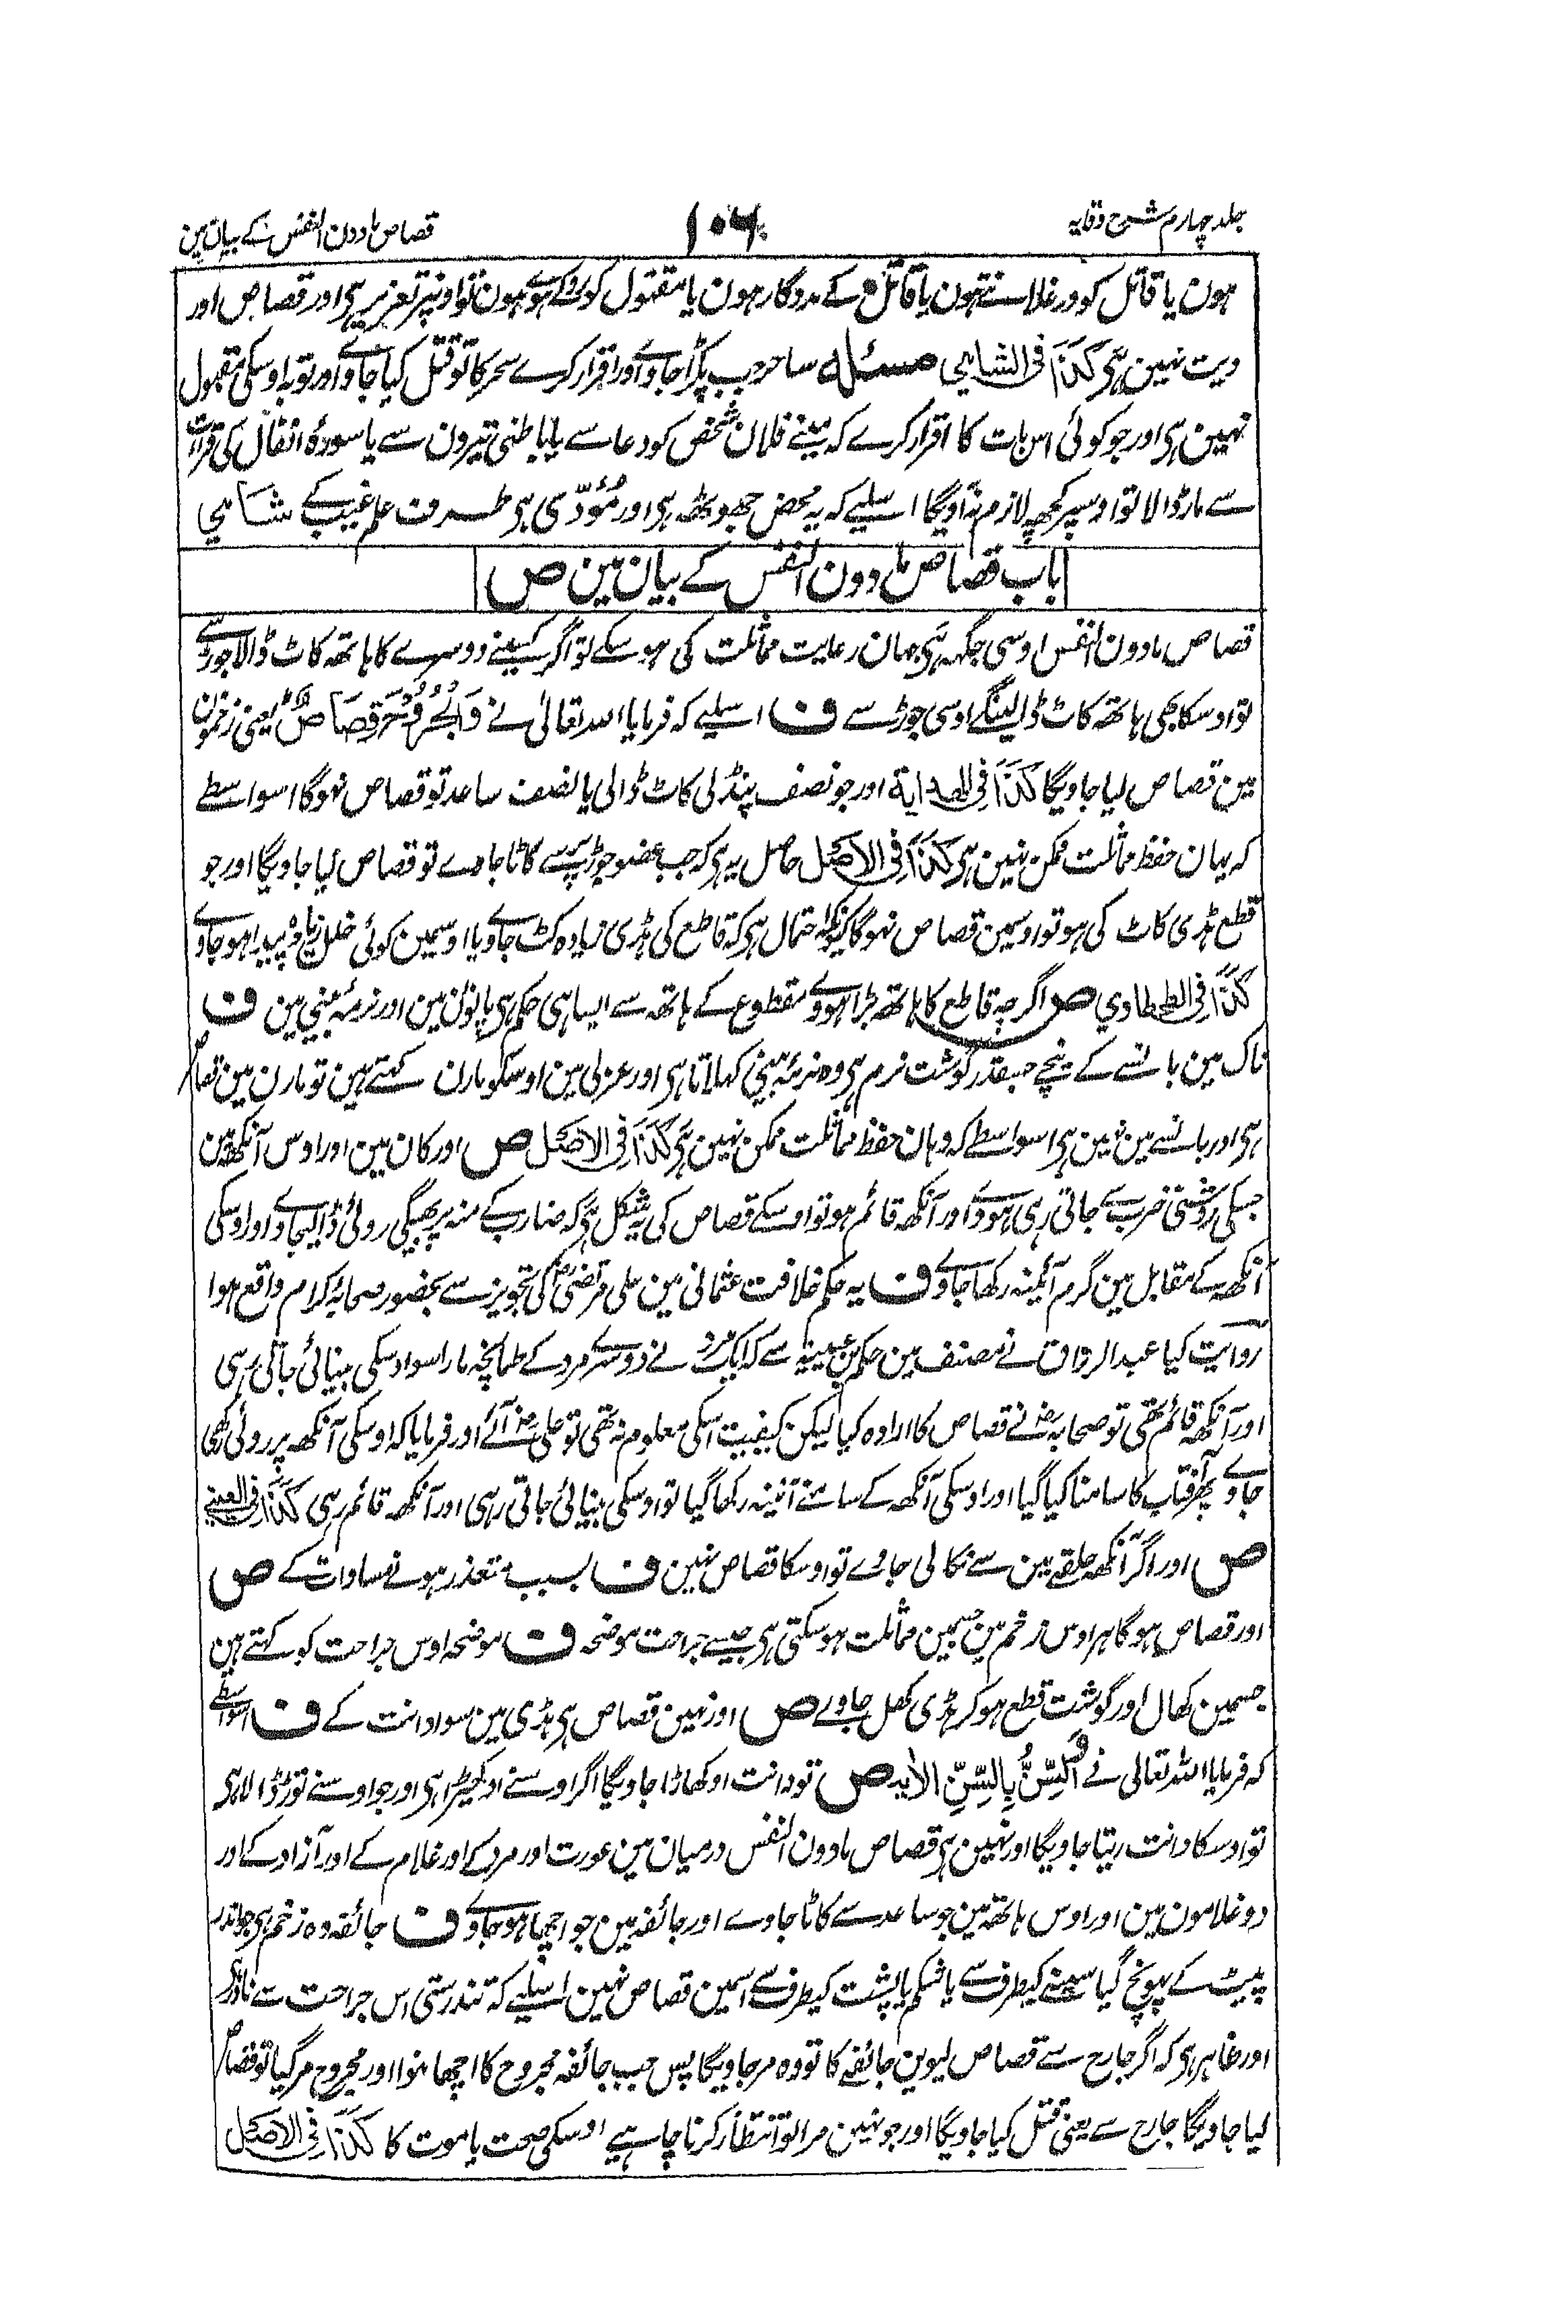 جلد چہارم شرح وقایہ
۱۰۶
قصاص مادون النفس کے بیان مین
ہون یا قاتل کو ورغلانتے ہون یا قاتل کے مددگار ہون یا مقتول کو روکے ہوے ہون تو اونپر تعزیر ہی اور قصاص اور
دیت نہین ہی کذا فی الشامی مسئلہ ساحر جب پکڑا جاوے اور اقرار کرے سحر کا تو قتل کیا جاوے اور توبہ اوسکی مقبول
نہین ہی اور جو کوئی اس بات کا اقرار کرے کہ مینے فلان شخص کو دعا سے یا باطنی تیرون سے یا سورۂ انفال کی قراءت
سے مار ڈالا تو اوسپر کچھ لازم نہ آویگا اسلیے کہ یہ محض جھوٹھ ہی اور مُؤدّی ہی طرف علم غیب کے شامی
باب قصاص مادون النفس کے بیان مین ص
قصاص مادون النفس اوسی جگہہ ہی جہان رعایت مماثلت کی ہوسکے تو اگر کسینے دوسرے کا ہاتھ کاٹ ڈالا جوڑ سے
تو اوسکا بھی ہاتھ کاٹ ڈالینگے اوسی جوڑ سے ف اسلیے کہ فرمایا اللہ تعالیٰ نے وَالْجُرُوْحَ قِصَاصٌ یعنی زخمون
مین قصاص لیا جاویگا کذا فی الہدایۃ اور جو نصف پنڈلی کاٹ ڈالی یا نصف ساعد تو قصاص نہوگا اسواسطے
کہ یہان حفظ مماثلت ممکن نہین ہی کذا فی الاصل حاصل یہ ہی کہ جب عضو جوڑ پر سے کاٹا جاوے تو قصاص لیا جاویگا اور جو
قطع ہڈی کاٹ کی ہو تو اوسمین قصاص نہوگا کیونکہ احتمال ہی کہ قاطع کی ہڈی زیادہ کٹ جاوے یا اوسمین کوئی خلل زیادہ پیدا ہو جاوے
کذا فی الطحطاوی ص اگرچہ قاطع کا ہاتھ بڑا ہووے مقطوع کے ہاتھ سے ایسا ہی حکم ہی پانون مین اور نرمۂ بینی مین ف
ناک مین بانسے کے نیچے جسقدر گوشت نرم ہی وہ نرمۂ بینی کہلاتا ہی اور عربی مین اوسکو مارن کہتے ہین تو مارن مین قصاص
ہی اور بانسے مین نہین ہی اسواسطے کہ وہان حفظ مماثلت ممکن نہین ہی کذا فی الاصل ص اور کان مین اور اوس آنکھ مین
جسکی روشنی ضرب سے جاتی رہی ہووے اور آنکھ قائم ہو تو اوسکے قصاص کی یہ شکل ہی کہ ضارب کے منہ پر بھیگی روئی ڈالیجاوے اور اوسکی
آنکھ کے مقابل مین گرم آئینہ رکھا جاوے ف یہ حکم خلافت عثمانی مین علی مرتضیٰ کی تجویز سے بحضور صحابۂ کرام واقع ہوا
روایت کیا عبدالرزاق نے مصنف مین حکم بن عیینہ سے کہ ایک مرد نے دوسرے مرد کے طمانچہ مارا سو اوسکی بینائی جاتی رہی
اور آنکھ قائم تھی تو صحابہ نے قصاص کا ارادہ کیا لیکن کیفیت اسکی معلوم نہ تھی تو علی آئے اور فرمایا کہ اوسکی آنکھ پر روئی رکھی
جاوے پھر آفتاب کا سامنا کیا گیا اور اوسکی آنکھ کے سامنے آئینہ رکھا گیا تو اوسکی بینائی جاتی رہی اور آنکھ قائم رہی کذا فی العینی
ص اور اگر آنکھ حلقے مین سے نکالی جاوے تو اوسکا قصاص نہین ف بسبب متعذر ہونے مساوات کے ص
اور قصاص ہوگا ہر اوس زخم مین جسمین مماثلت ہو سکتی ہی جیسے جراحت موضحہ ف موضحہ اوس جراحت کو کہتے ہین
جسمین کھال اور گوشت قطع ہوکر ہڈی کھل جاوے ص اور نہین قصاص ہی ہڈی مین سوا دانت کے ف اسواسطے
کہ فرمایا اللہ تعالی نے وَالسِّنُّ بِالسِّنِّ الآیہ ص تو دانت اوکھاڑا جاویگا اگر اوسنے اوکھیڑا ہی اور جو اوسنے توڑ ڈالا ہی
تو اوسکا دانت ریتا جاویگا اور نہین ہی قصاص مادون النفس درمیان مین عورت اور مرد کے اور غلام کے اور آزاد کے اور
دو غلامون مین اور اوس ہاتھ مین جو ساعد سے کاٹا جاوے اور جائفہ مین جو اچھا ہو جاوے ف جائفہ وہ زخم ہی جو اندر
پیٹ کے پہونچ گیا سینے کیطرف سے یا شکم یا پشت کیطرف سے اسمین قصاص نہین اسلیے کہ تندرستی اس جراحت سے نادر ہی
اور ظاہر ہی کہ اگر جارح سے قصاص لیوین جائفے کا تو وہ مر جاویگا پس جب جائفہ مجروح کا اچھا نہوا اور مجروح مر گیا تو قصاص
لیا جاویگا جارح سے یعنی قتل کیا جاویگا اور جو نہین مرا تو انتظار کرنا چاہیے اوسکی صحت یا موت کا کذا فی الاصل